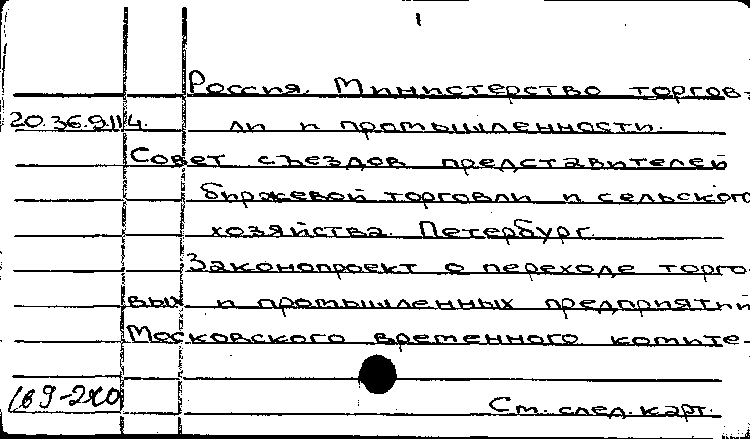 1
Россия. Министерство торгов-
20.36.9114. ли и промышленности.
Совет съездов представителей
биржевой торговли и сельского
хозяйства. Петербург.
Законопроект о переходе торго
вых и промышленных предприятий
Московского временного комите-
См. след. карт.